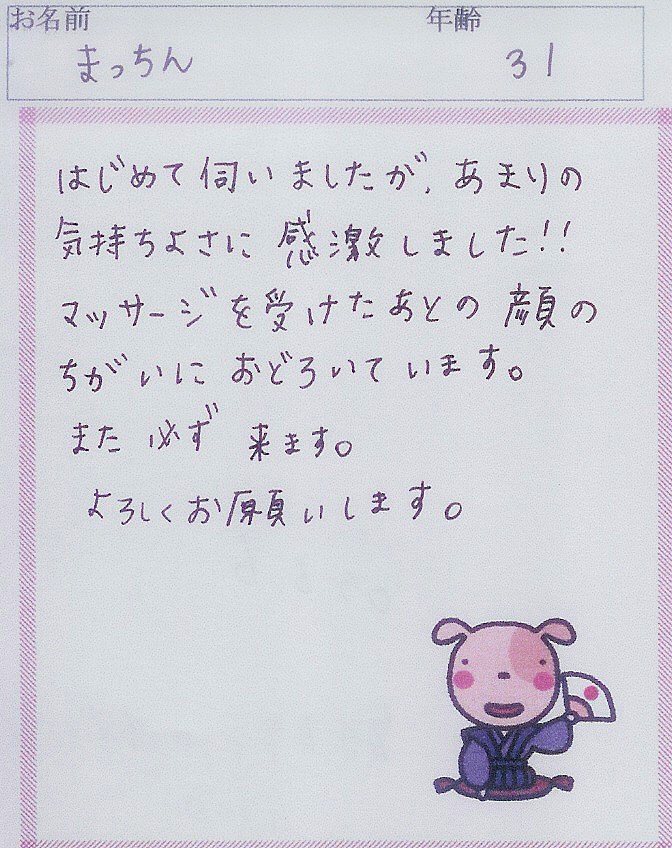 お名前 年齢
まっちん 31
はじめて伺いましたが、あまりの
気持ちよさに感激しました!!
マッサージを受けたあとの顔の
ちがいにおどろいています。
また必ず来ます。
よろしくお願いします。